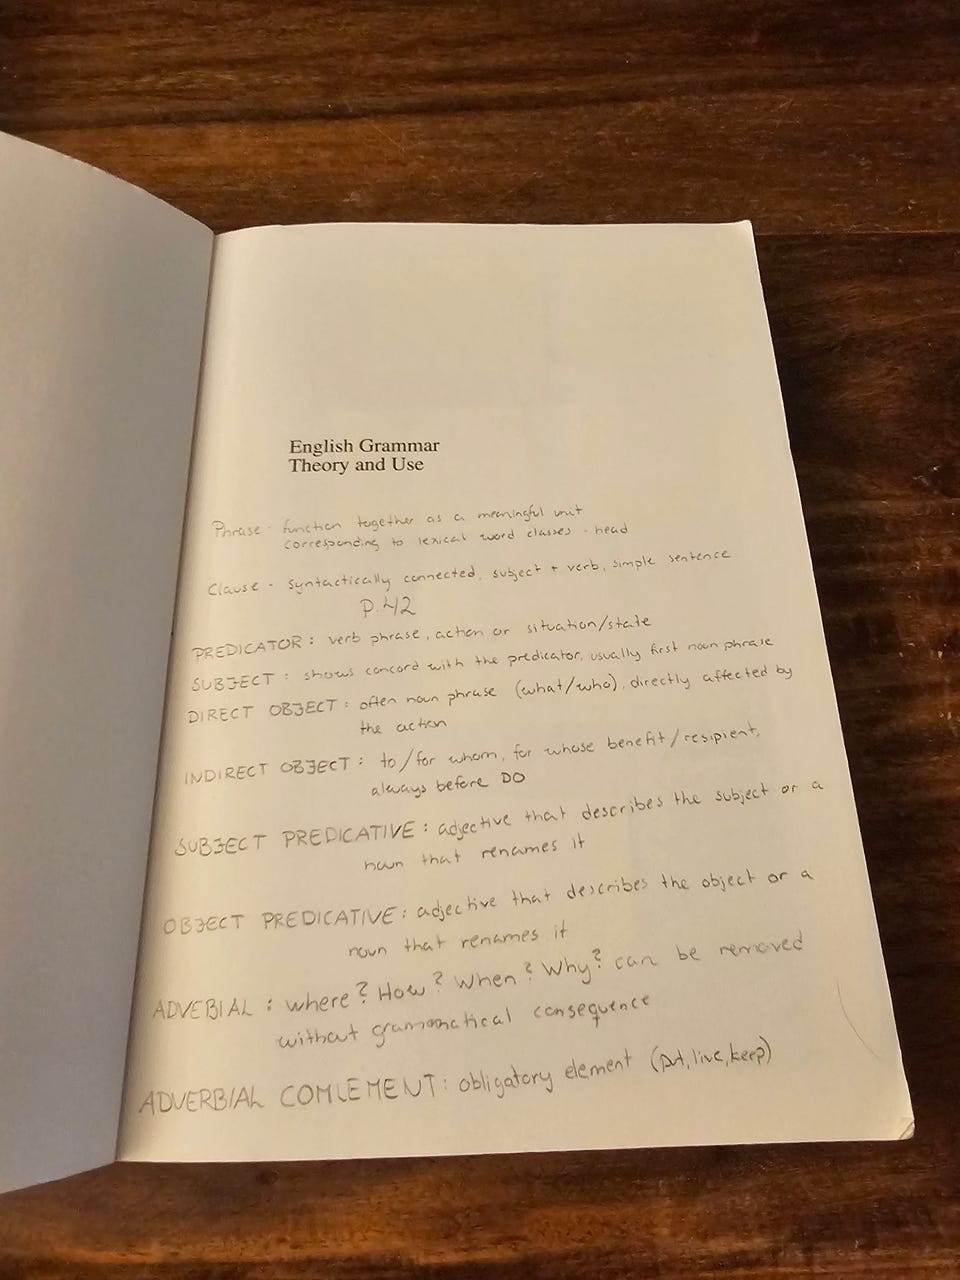 English Grammar
Theory and Use
Phrase - function together as a meaningful unit
corresponding to lexical word classes - head
Clause - syntactically connected, subject + verb, simple sentence
P. 42
PREDICATOR : verb phrase, action or situation/state
SUBJECT : shows concord with the predicator, usually first noun phrase
DIRECT OBJECT : often noun phrase (what/who), directly affected by
the action
INDIRECT OBJECT : to/for whom, for whose benefit/resipient,
always before DO
SUBJECT PREDICATIVE : adjective that describes the subject or a
noun that renames it
OBJECT PREDICATIVE : adjective that describes the object or a
noun that renames it
ADVEBIAL : where? How? When? Why? can be removed
without grammatical consequence
ADVERBIAL COMLEMENT : obligatory element (put, live, keep)